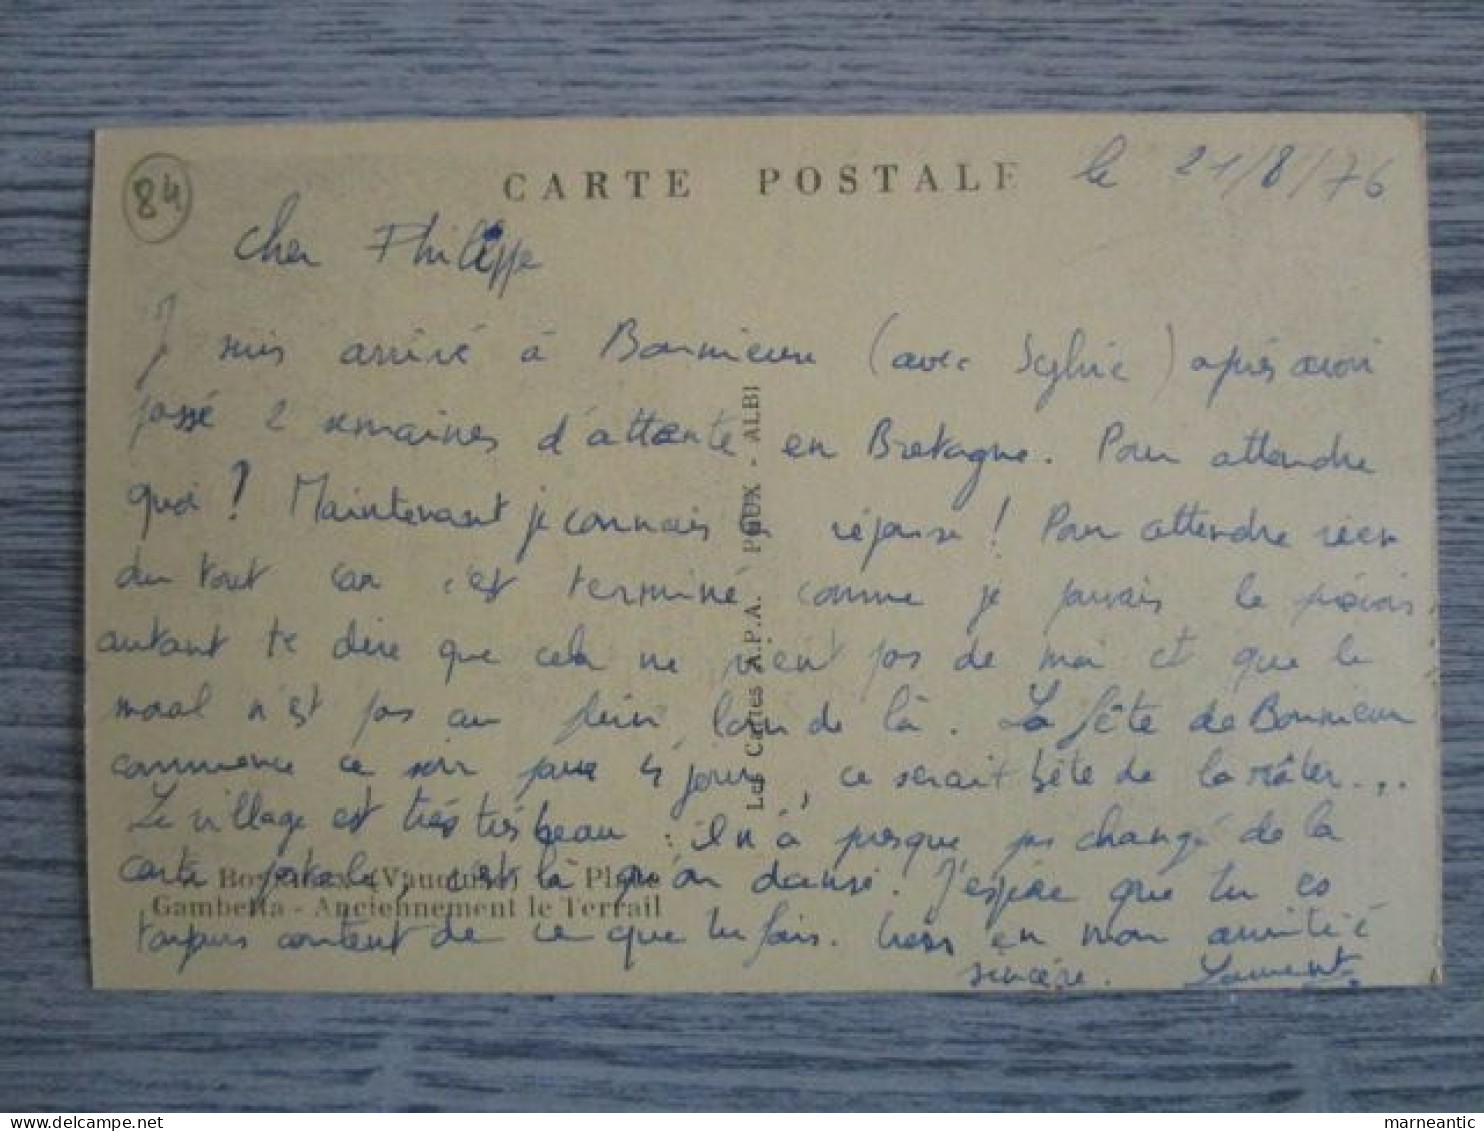 84
CARTE POSTALE
le 21/8/76
Cher Philippe
Je suis arrivé à Bonnieux (avec Sylvie) après avoir
passé 2 semaines d'attente en Bretagne. Pour attendre
quoi ? Maintenant je connais la réponse ! Pour attendre rien
du tout car c'est terminé comme je pouvais le prévoir
autant te dire que cela ne vient pas de moi et que le
moral n'est pas au plein, loin de là. La fête de Bonnieux
commence ce soir pour 4 jours, ce serait bête de la râter...
Le village est très très beau : il n'a presque pas changé de la
carte postale, c'est là qu'on danse. J'espère que tu es
toujours content de ce que tu fais. Crois en mon amitié
sincère. Laurent
Bonnieux (Vaucluse) - Place
Gambetta - Anciennement le Terrail
Les Cartes A.P.A. POUX - ALBI
marneantic